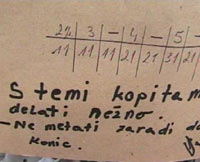 24 3 - 4 - 5 -
11 11 11 21 21 31 21
S temi kopitam
delati nežno.
- Ne metati zaradi
konic.